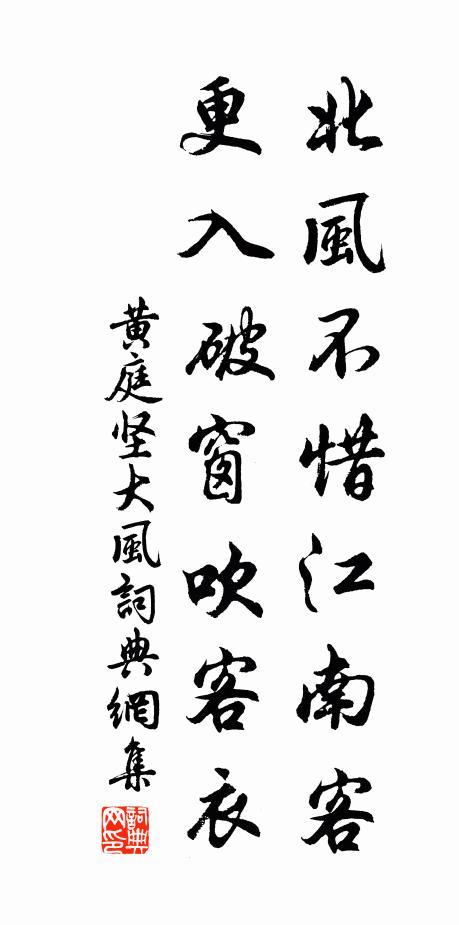 北風不惜江南客
更入破窗吹客衣
黃庭坚大風詞典網集
詞典网印